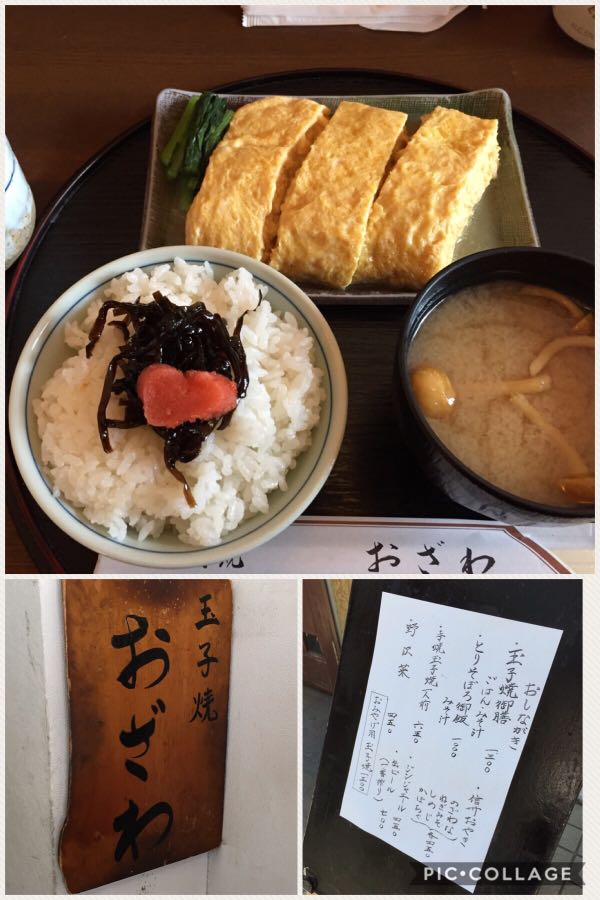 焼 おざわ
玉子焼
おざわ
おしながき
・玉子焼御膳
ごはん・みそ汁
一三〇〇
・とりそぼろ御飯
みそ汁
・手焼玉子焼一人前 六五〇
・野沢菜 四五〇
おみやげ用玉子焼
・信州おやき
のざわな
ねぎみそ
しめじ
かぼちゃ
各四五〇
・ジンジャエール 四五〇
・生ビール
(一番搾り) 七〇〇
PIC•COLLAGE